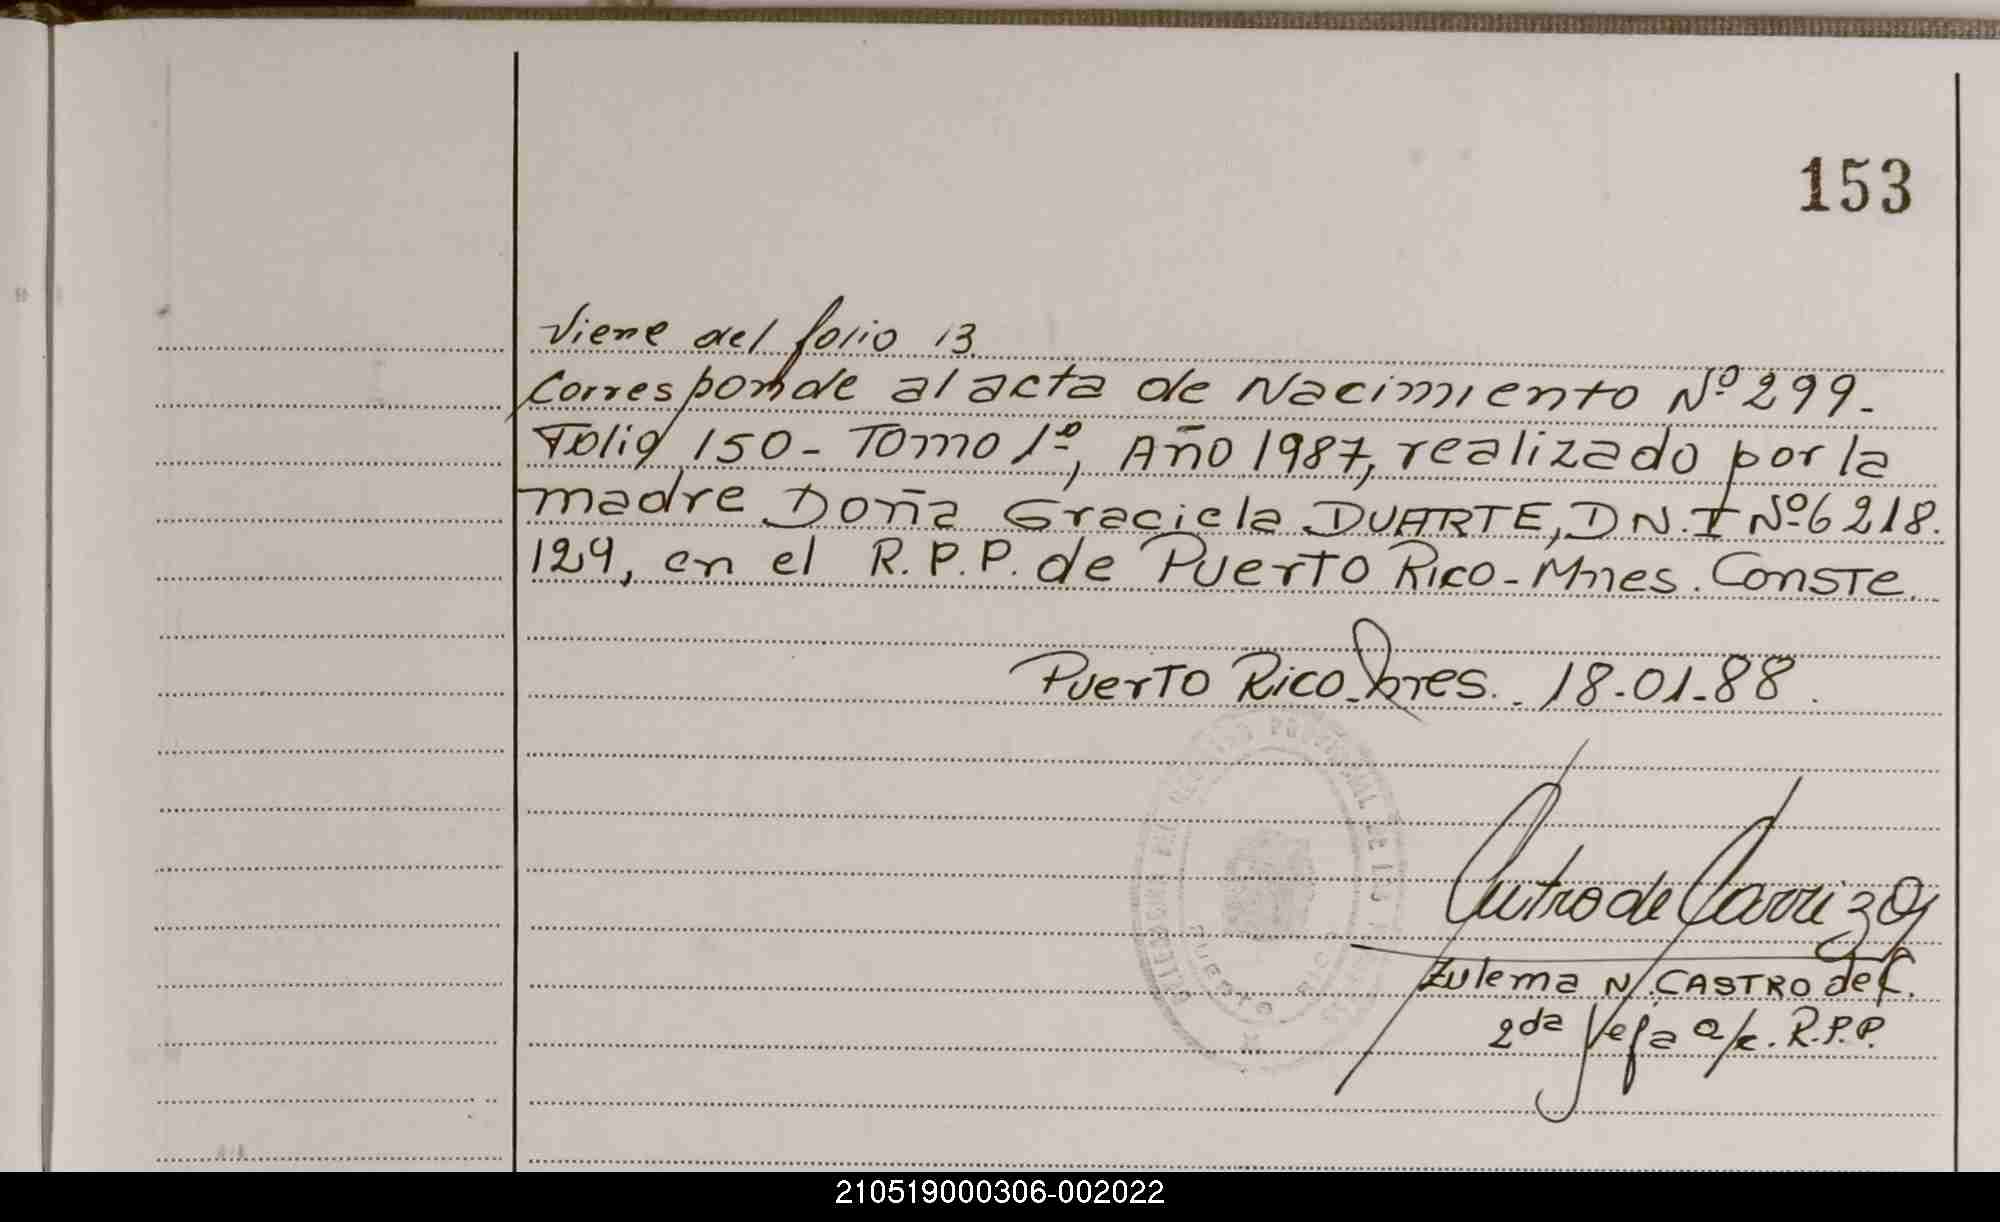 153
Viene del folio 13
Corresponde al acta de Nacimiento Nº 299-
Folio 150- Tomo 1º, Año 1987, realizado por la
madre Doña Graciela DUARTE, D N. I Nº 6 218.
129, en el R. P. P. de Puerto Rico - Mnes. Conste.
Puerto Rico - Mnes. - 18-01-88.
PUERTO RICO
Castro de Carrizo
Zulema N. CASTRO de C.
2da Jefa a/c. R.P.P.
210519000306-002022